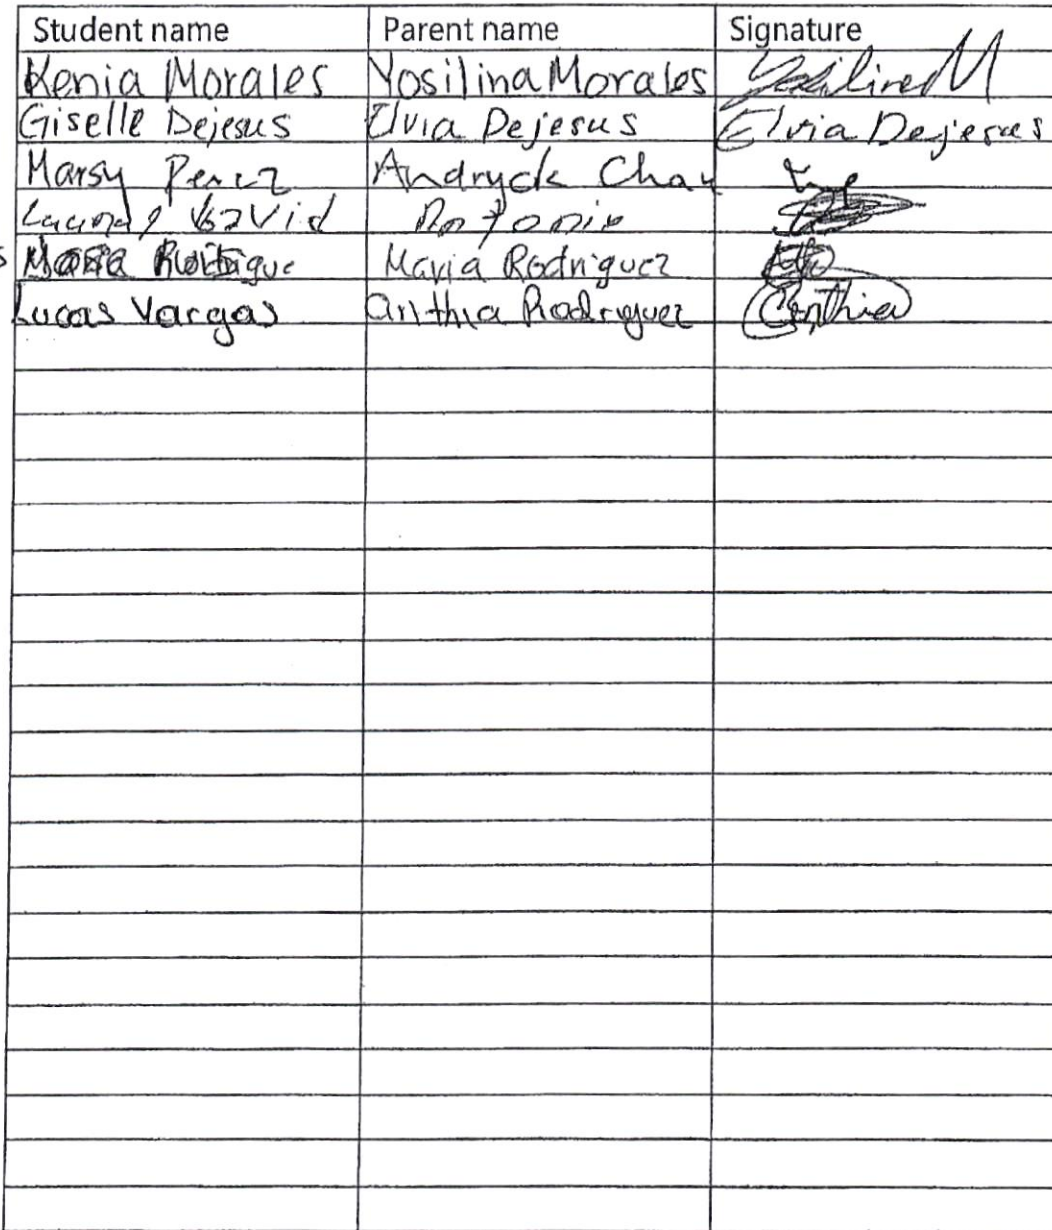 Student name Parent name Signature
Kenia Morales Yosilina Morales Yosilina M
Giselle Dejesus Elvia Dejesus Elvia Dejesus
Marsy Perez Andryck Chay
David Antonio
Maria Rodriguez
Lucas Vargas Cinthia Rodriguez Cinthia